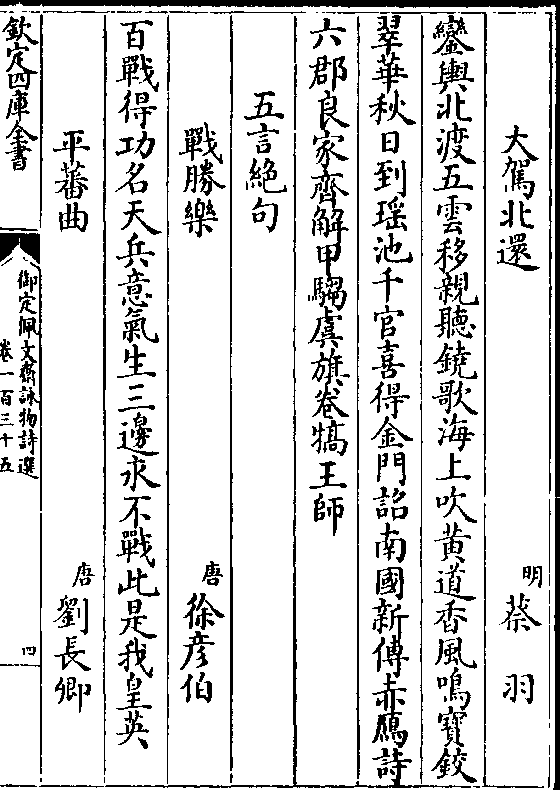 大駕北還
明 蔡羽
鑾輿北渡五雲移親聽鐃歌海上吹黄道香風鳴寶鉸
翠華秋日到瑶池千官喜得金門詔南國新傳赤鴈詩
六郡良家齊解甲騶虞旗卷犒王師
五言絶句
戰勝樂
唐 徐彦伯
百戰得功名天兵意氣生三邊永不戰此是我皇英
平蕃曲
唐 劉長卿
欽定四庫全書
御定佩文齋詠物詩選
卷一百三十五
四